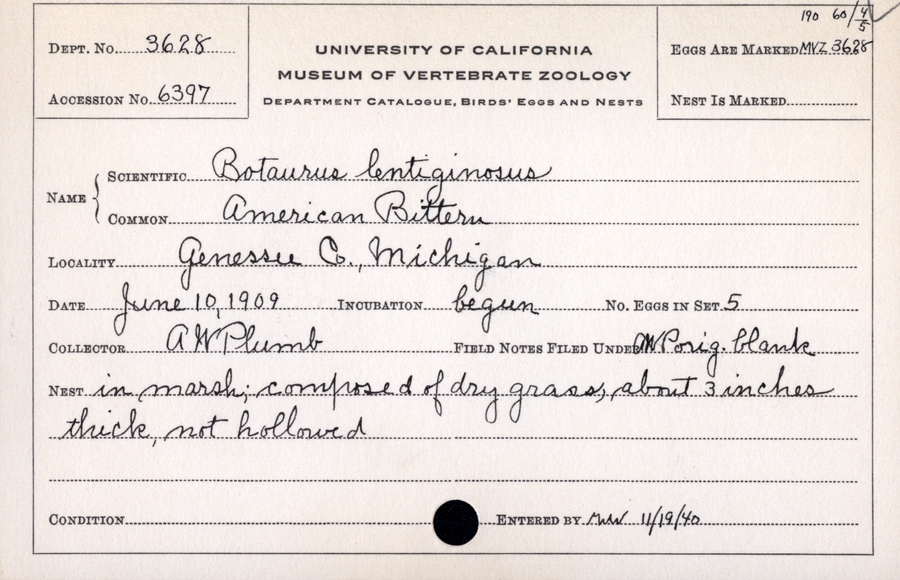 190 60/4/5
DEPT. NO. 3628
UNIVERSITY OF CALIFORNIA
EGGS ARE MARKED MVZ 3628
MUSEUM OF VERTEBRATE ZOOLOGY
ACCESSION NO. 6397
DEPARTMENT CATALOGUE, BIRDS' EGGS AND NESTS
NEST IS MARKED
NAME { SCIENTIFIC Botaurus lentiginosus
COMMON American Bittern
LOCALITY Genessee Co., Michigan
DATE June 10, 1909 INCUBATION begun NO. EGGS IN SET 5
COLLECTOR A W Plumb FIELD NOTES FILED UNDER AWP orig. blank
NEST in marsh; composed of dry grass; about 3 inches
thick, not hollowed
CONDITION ENTERED BY 11/19/40